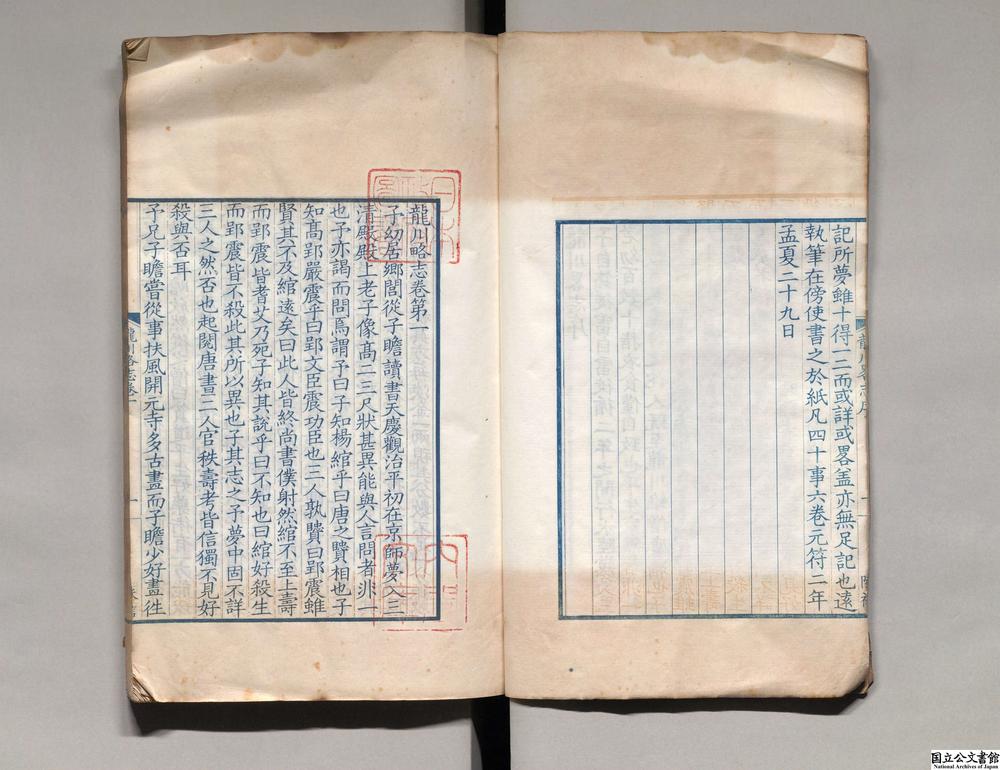 記所夢雖十得一二而或詳或畧盖亦無足記也遠
執筆在傍使書之於紙凡四十事六卷元符二年
孟夏二十九日
龍川略志卷第一
予幼居鄉閭從子瞻讀書天慶觀治平初在京師夢入三
清殿殿上老子像髙二三尺狀甚異能與人言問者非一
也予亦謁而問焉謂予曰子知楊綰乎曰唐之賢相也子
知髙郢嚴震乎曰郢文臣震功臣也三人孰賢曰郢震雖
賢其不及綰逺矣曰此人皆終尚書僕射然綰不至上壽
而郢震皆耆艾乃死子知其說乎曰不知也曰綰好殺生
而郢震皆不殺此其所以異也子其志之予夢中固不詳
三人之然否也起閱唐書二人官秩壽考皆信獨不見好
殺與否耳
予兄子瞻嘗從事扶風開元寺多古畫而子瞻少好畫徃
龍川略志卷一
国立公文書館
National Archives of Japan